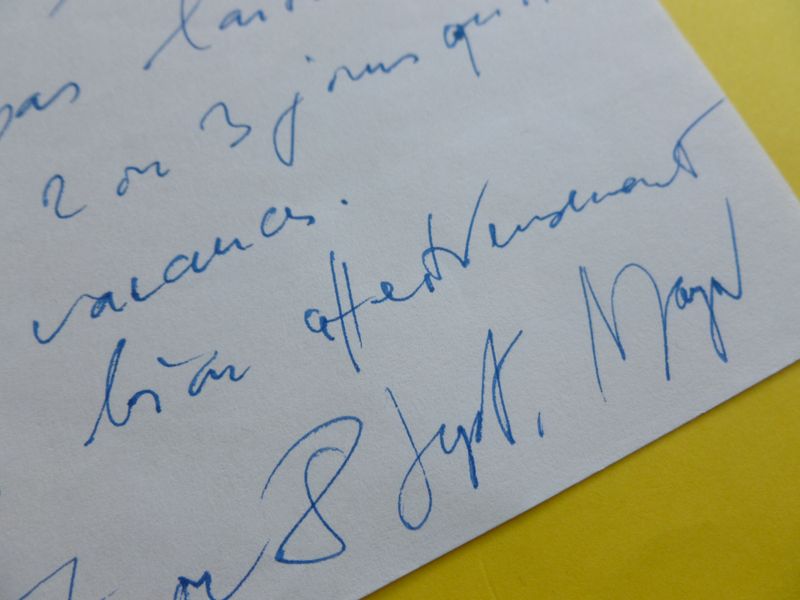 pas
2 ou 3 jours qu
vacances.
bien affectueusement
7 ou 8 Sept,